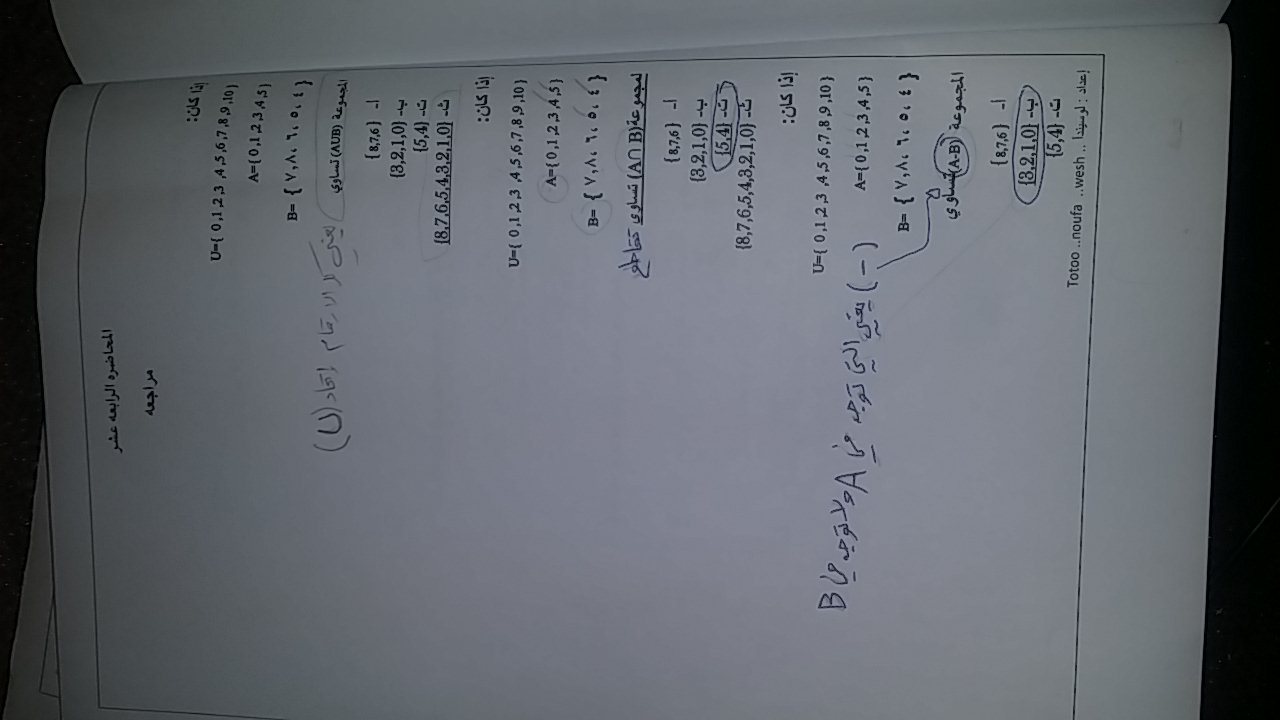 المحاضره الرابعه عشر
مراجعه
إذا كان:
U={ 0,1,2,3 ,4,5,6,7,8,9,10}
A={ 0,1,2,3,4,5}
B= { ٧,٨، ٦، ٥، ٤ }
المجموعة (AUB) تساوي يعني كل الارقام اتحاد (U)
أ- {8,7,6}
ب- {3,2,1,0}
ت- {5,4}
ث- {8,7,6,5,4,3,2,1,0}
إذا كان:
U={ 0,1,2,3 ,4,5,6,7,8,9,10}
A={ 0,1,2,3,4,5}
B= { ٧,٨، ٦، ٥، ٤ }
لمجموعة(A∩ B) تساوي تقاطع
أ- {8,7,6}
ب- {3,2,1,0}
ت- {5,4}
ث- {8,7,6,5,4,3,2,1,0}
إذا كان:
U={ 0,1,2,3 ,4,5,6,7,8,9,10}
A={ 0,1,2,3,4,5}
(-) يعني الي توجد في A ولا توجد في B
B= { ٧,٨، ٦، ٥، ٤ }
المجموعة (A-B) تساوي
أ- {8,7,6}
ب- {3,2,1,0}
ت- {5,4}
إعداد : لوسيندا .. Totoo ..noufa ..wesh